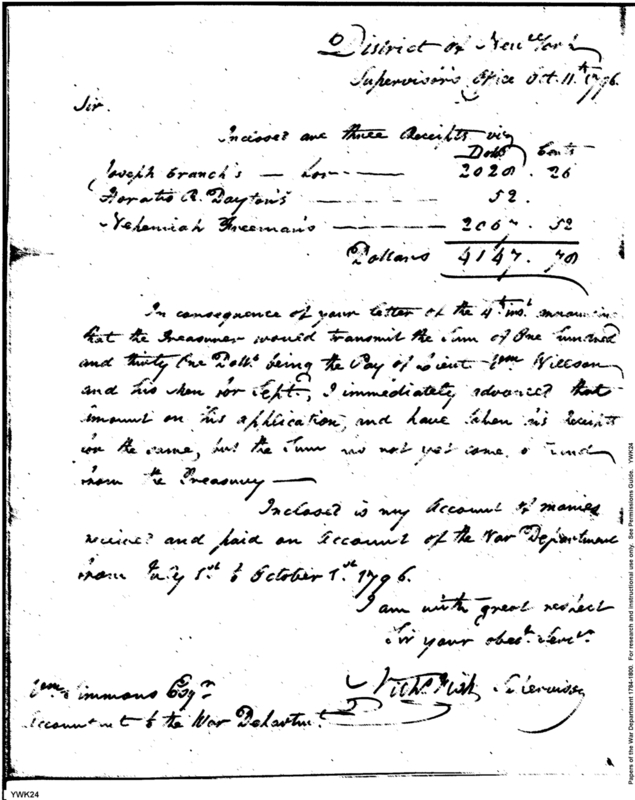 District of New York
Supervisor's Office Oct. 11th 1796.
Sir.
Inclosed are three Receipts viz
Dolls Cents
Joseph Branch's — for — 2028. 26
Horatio R. Dayton's — 52.
Nehemiah Freeman's — 2067. 52
Dollars 4147. 78
In consequence of your letter of the 4th inst.
that the Treasurer would transmit the Sum of One Hundred
and thirty One Dolls. being the Pay of Lieut Wm Willson
and his Men for Sept., I immediately advanced that
amount on his application, and have taken his Receipts
for the same, but the Sum has not yet come to hand
from the Treasury —
Inclosed is my Account of monies
received and paid on Account of the War Department
from July 1st to October 1st 1796.
I am with great respect
Sir your obedt. Servt.
Nichs. Fish Supervisor
Wm Simmons Esqr.
Accountant to the War Department
Papers of the War Department 1784-1800. For research and instructional use only. See Permissions Guide. YWK24
YWK24